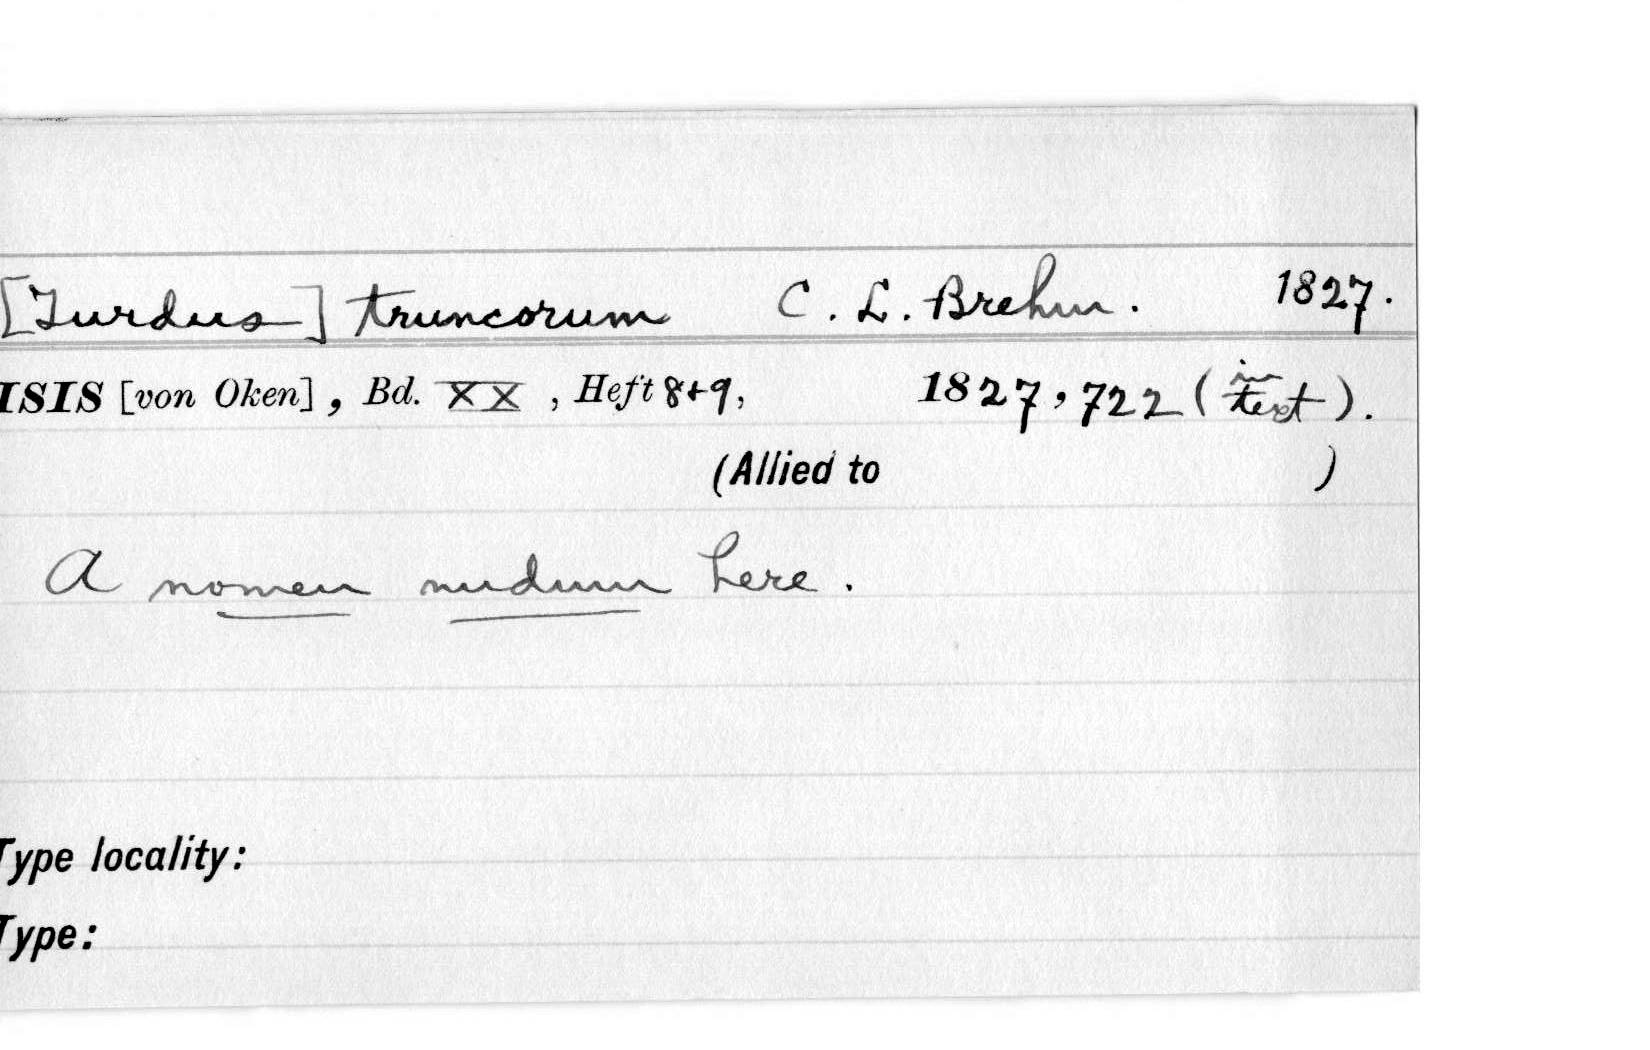 [Turdus] truncorum C. L. Brehm. 1827.
ISIS [von Oken], Bd. XX, Heft 8+9, 1827, 722 (in text).
(Allied to )
A nomen nudum here.
Type locality:
Type: